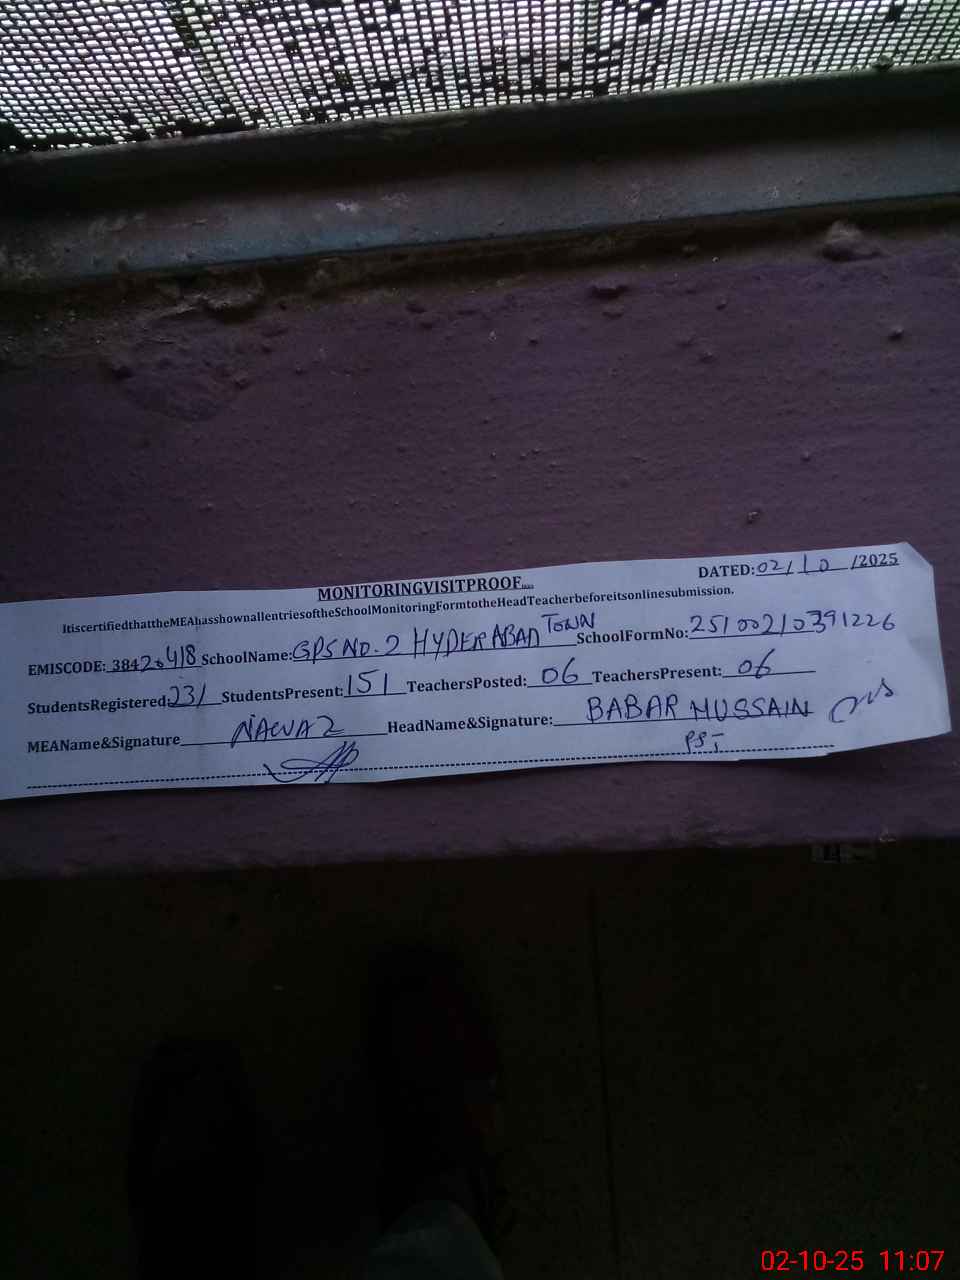 MONITORINGVISITPROOF
DATED: 02/10/2025
ItiscertifiedthattheMEAhasshownallentriesoftheSchoolMonitoringFormtotheHeadTeacherbeforeitsonlinesubmission.
EMISCODE: 38420418 SchoolName: GPS NO. 2 HYDERABAD TOWN SchoolFormNo: 25100210391226
StudentsRegistered 231 StudentsPresent: 151 TeachersPosted: 06 TeachersPresent: 06
MEAName&Signature NAWAZ HeadName&Signature: BABAR HUSSAIN
PST
02-10-25 11:07